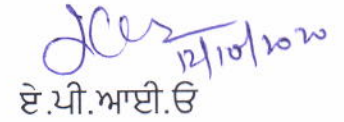 12/10/2020
ਏ.ਪੀ.ਆਈ.ਓ